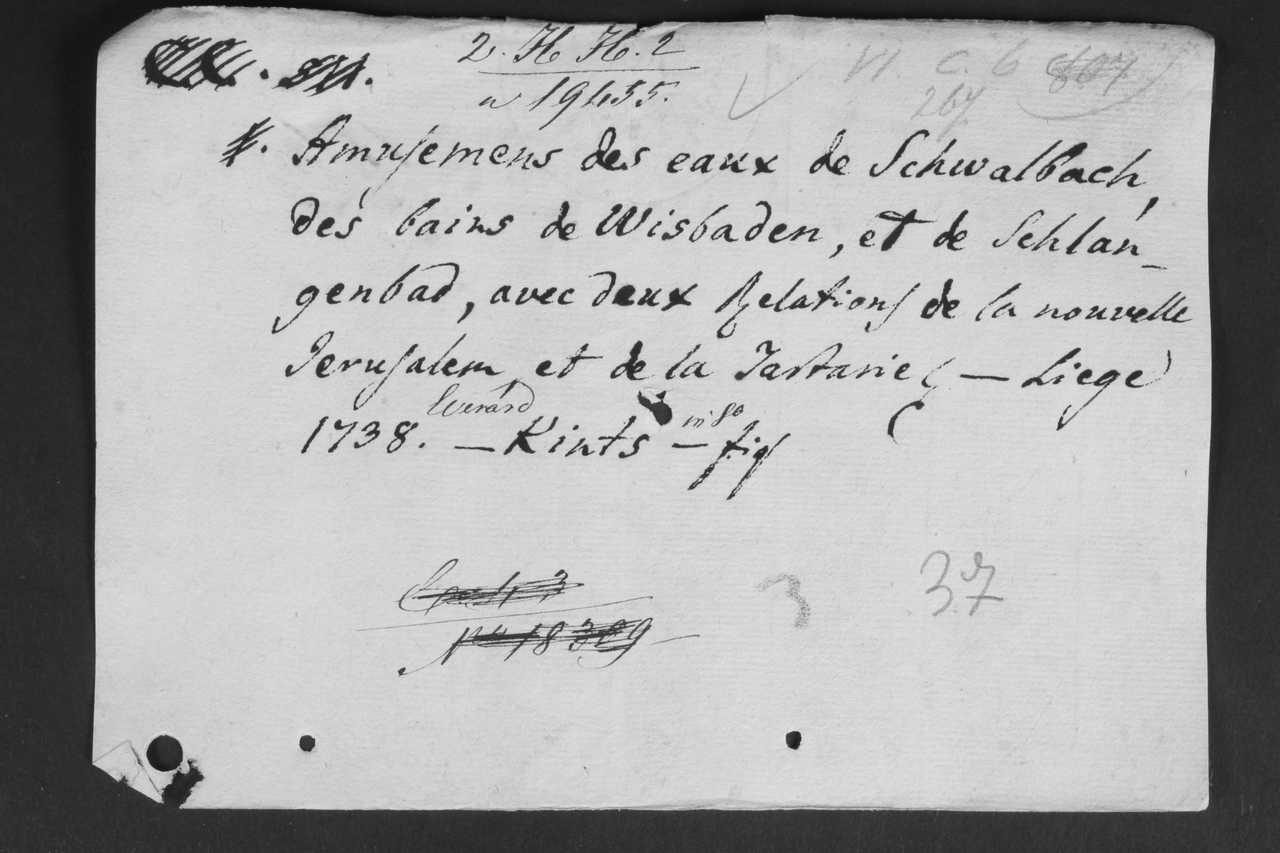 2. H H. 2
n 19455.
VI C. 6
267
Amusemens des eaux de Schwalbach,
des bains de Wisbaden, et de Schlan_
genbad, avec deux Relations de la nouvelle
Jerusalem et de la Tartarie (— Liege)
Everard in 8o
1738. — Kints — fig
3 37
No 18309